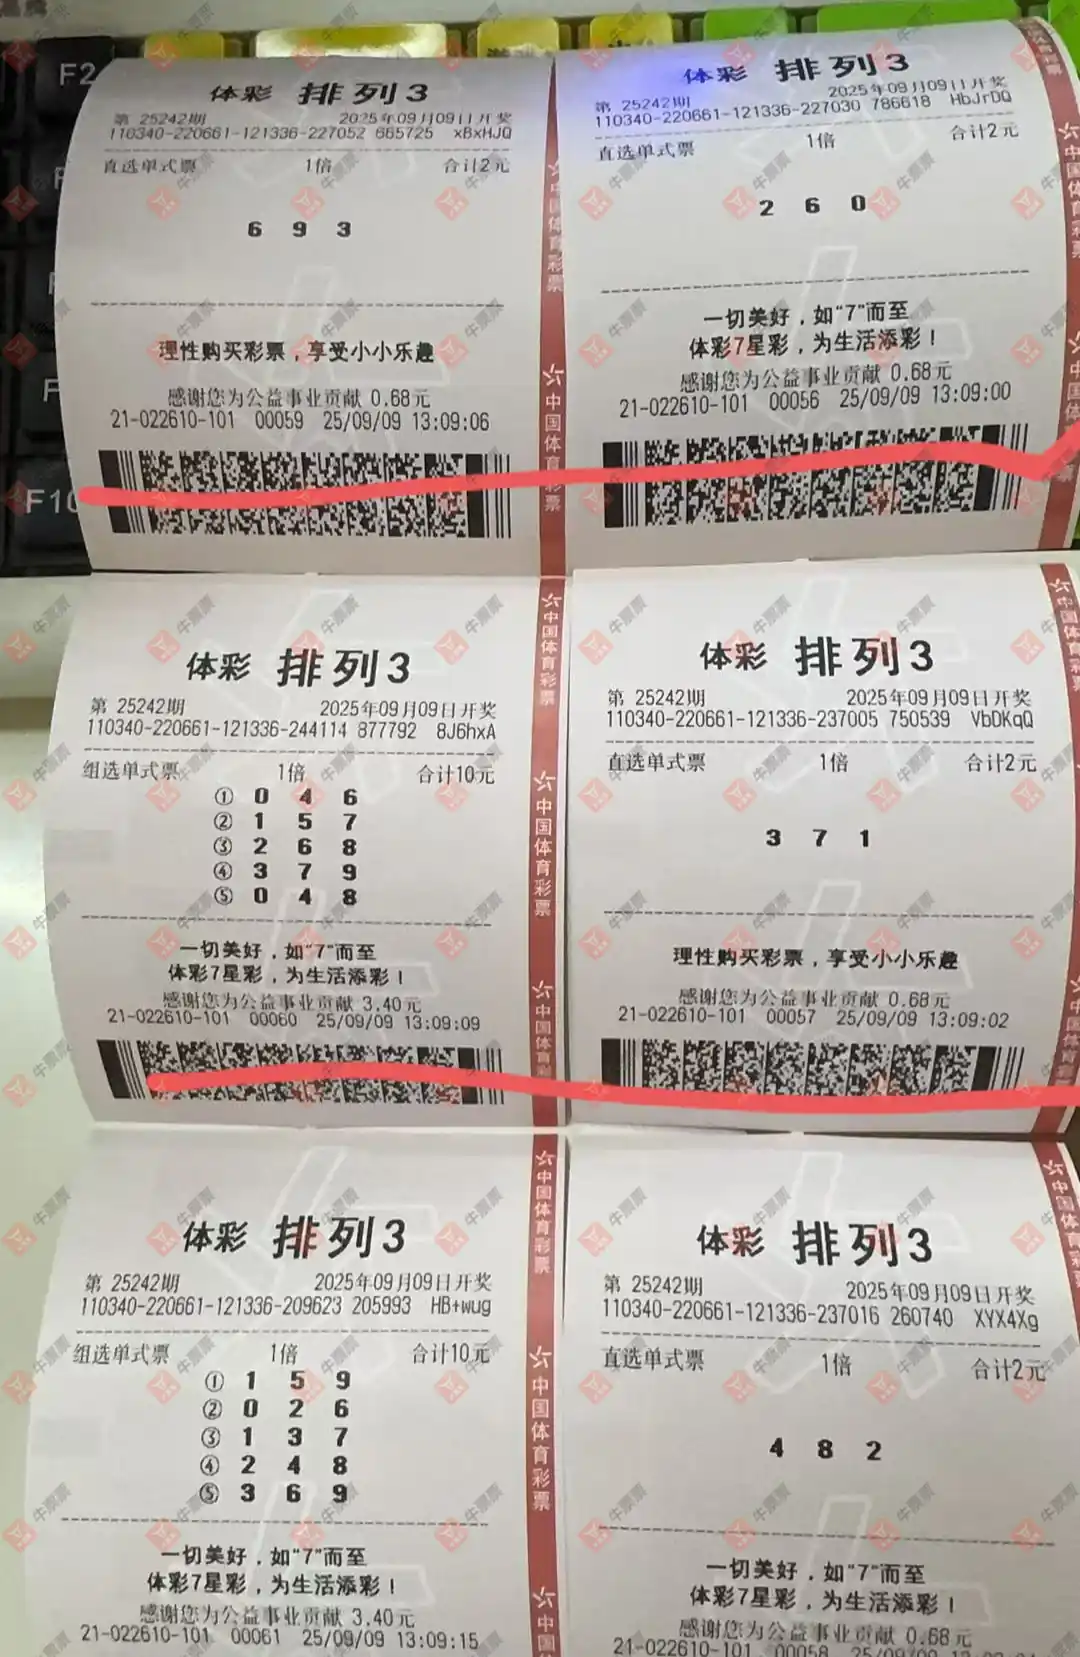 F2
体彩 排列3
第 25242期 2025年09月09日开奖
110340-220661-121336-227052 665725 xBxHJQ
直选单式票 1倍 合计2元
6 9 3
理性购买彩票，享受小小乐趣
感谢您为公益事业贡献 0.68元
21-022610-101 00059 25/09/09 13:09:06
F10
体彩 排列3
第 25242期 2025年09月09日开奖
110340-220661-121336-227030 786618 HbJrDQ
直选单式票 1倍 合计2元
2 6 0
一切美好，如“7”而至
体彩7星彩，为生活添彩！
感谢您为公益事业贡献 0.68元
21-022610-101 00056 25/09/09 13:09:00
中国体育彩票
体彩 排列3
第 25242期 2025年09月09日开奖
110340-220661-121336-244114 877792 8J6hxA
组选单式票 1倍 合计10元
① 0 4 6
② 1 5 7
③ 2 6 8
④ 3 7 9
⑤ 0 4 8
一切美好，如“7”而至
体彩7星彩，为生活添彩！
感谢您为公益事业贡献 3.40元
21-022610-101 00060 25/09/09 13:09:09
中国体育彩票
体彩 排列3
第 25242期 2025年09月09日开奖
110340-220661-121336-237005 750539 VbDKqQ
直选单式票 1倍 合计2元
3 7 1
理性购买彩票，享受小小乐趣
感谢您为公益事业贡献 0.68元
21-022610-101 00057 25/09/09 13:09:02
体彩 排列3
第 25242期 2025年09月09日开奖
110340-220661-121336-209623 205993 HB+wug
组选单式票 1倍 合计10元
① 1 5 9
② 0 2 6
③ 1 3 7
④ 2 4 8
⑤ 3 6 9
一切美好，如“7”而至
体彩7星彩，为生活添彩！
感谢您为公益事业贡献 3.40元
21-022610-101 00061 25/09/09 13:09:15
中国体育彩票
体彩 排列3
第 25242期 2025年09月09日开奖
110340-220661-121336-237016 260740 XYX4Xg
直选单式票 1倍 合计2元
4 8 2
一切美好，如“7”而至
体彩7星彩，为生活添彩！
感谢您为公益事业贡献 0.68元
21-022610-101 00058
牛票票